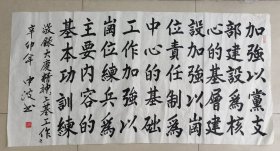 加強以黨支
部建設為核
心的基層建
設加強以崗
位責任制為
中心的基础
工作加強以
崗位練兵為
主要内容的
基本功訓練
大慶精神三基工作
辛卯年